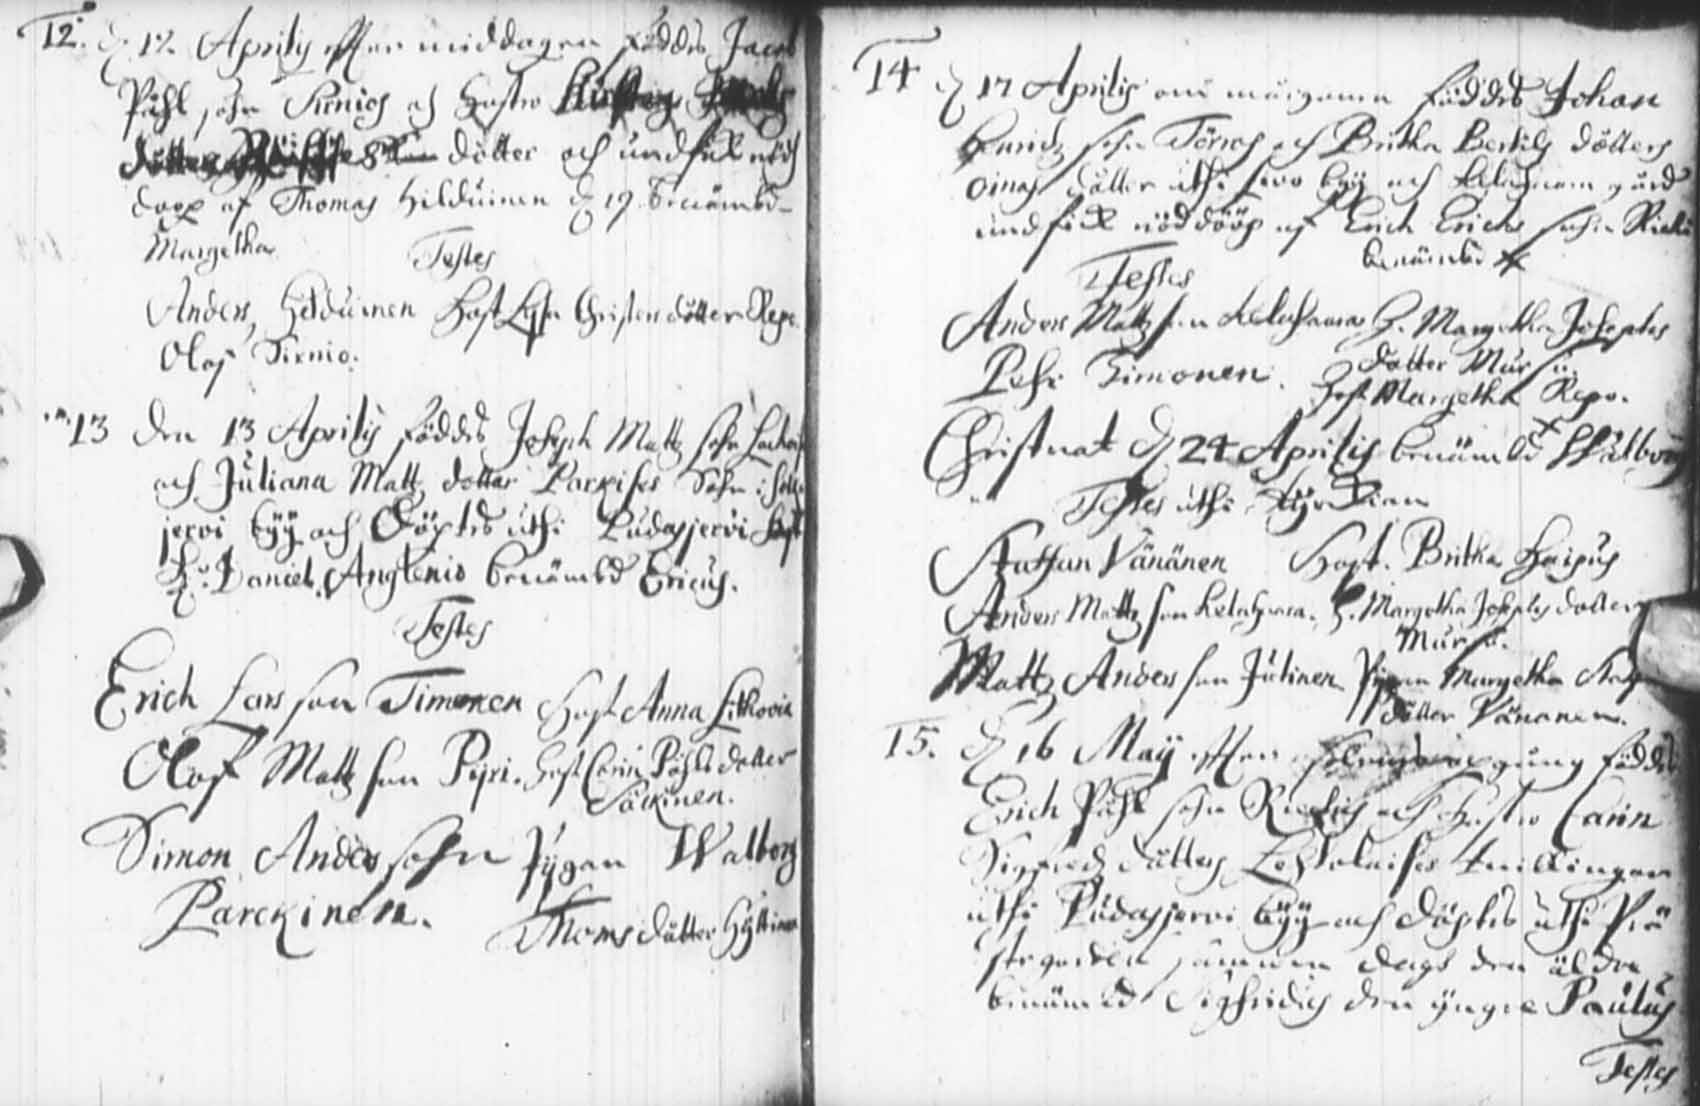 12. d 12 Aprilis effter middagen föddes Jacob
Påhl sohn Sirnios och Hustro
dotter och undfick nödh
doop af Thomas Hilduinen d 19 benämbd
Margetha
Testes
Anders Hilduinen Hust Lisa Christers dotter Repo
Olof Sirnio.
13 den 13 Aprilis föddes Joseph Matz sohn
och Juliana Matz dotter Parkises Sohn i
jervi byy och döptes uthi Pudasjervi
Hr. Daniel Anglenio benämbd Ericus.
Testes
Erich Lars son Timonen Hust Anna Litkovia
Olof Matz son Pyri. Hust Carin Påhls dotter
Säckinen.
Simon Anders sohn Pygan Walborg
Parckinen. Thoms dotter Hyttinen
14 d 17 Aprilis om morgonen föddes Johan
sohn Törros och Britha Bertils dotters
dotter uthi byy och gård
undfick nöddööp af Erich Erichs sohn
benämbd
Testes
Anders Matz son Kelahama H. Margetha Josephs
dotter Mursu
Pehr Timonen. Hust Margetha Repo.
Christnat d 24 Aprilis benämbd Walborg
Testes uthi Kyrckian
Staffan Vänänen Hust. Britha Haipus
Anders Matz son Kelahama. H. Margetha Josephs dotter
Mursu.
Matz Anders son Jutinen Pigan Margetha
dotter Vänänen.
15. d 16 May effter gung föddes
Erich Påhl sohn och Hustro Carin
Sigfreds dotters twillingar
uthi Pudasjervi byy och döptes uthi Prä
stegården samma dags den äldre
benämbd Sigfridus den yngre Paulus
Testes